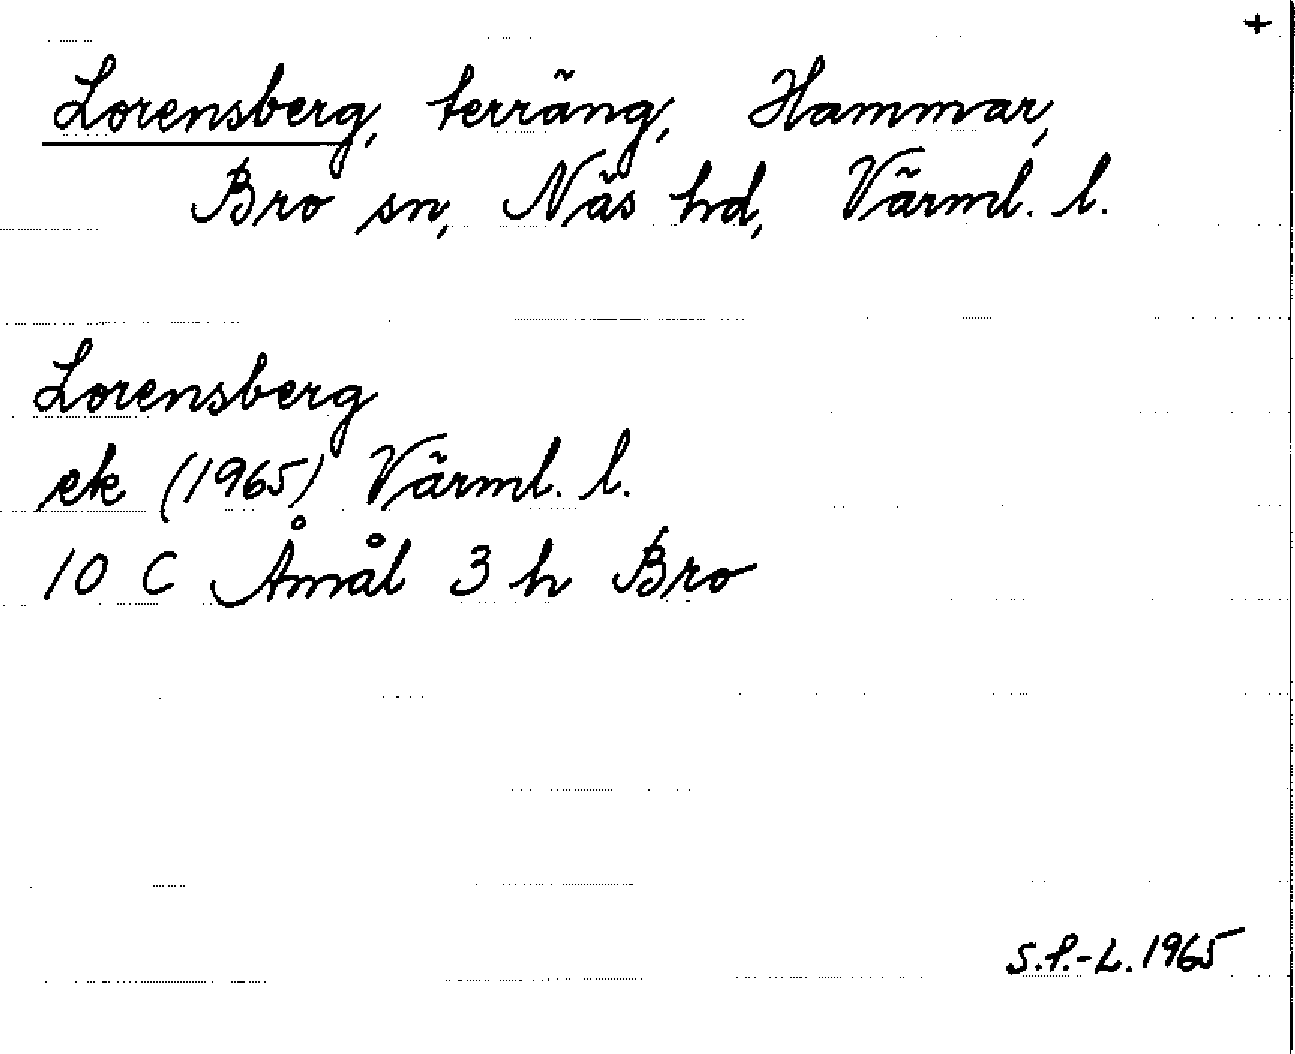 +
Lorensberg, terräng, Hammar,
Bro sn, Näs hd, Värml. l.
Lorensberg
ek (1965) Värml. l.
10 C Åmål 3 h Bro
S.P.-L. 1965